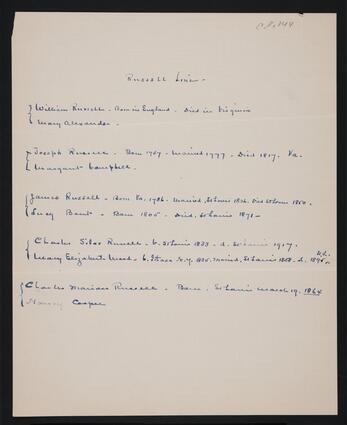 Russell Line -
William Russell - Born in England - Died in Virginia
Mary Alexander -
Joseph Russell - Born 1757 - Married 1777 - Died 1817. Va.
Margaret Campbell -
James Russell - Born Va. 1786. Married, St Louis 1826. Died St Louis 1850.
Lucy Bent - Born 1805 - Died, St Louis 1871 -
Charles Silas Russell - b. St Louis 1833 - d. St Louis 1917.
Mary Elizabeth Mead - b. N.Y. 1835. Married, St Louis 1858. d. 1895
Charles Marion Russell - Born - St Louis March 19, 1864
Nancy Cooper